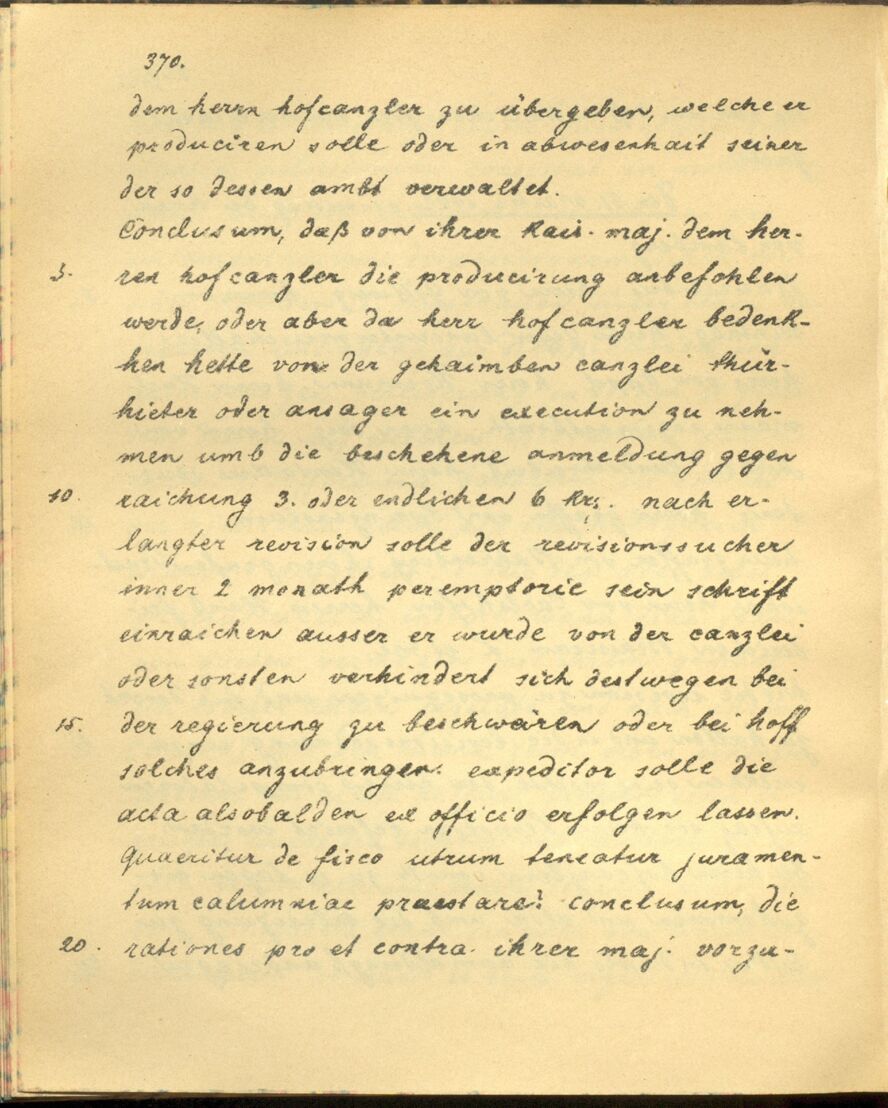 370.
dem herrn hofcanzler zu übergeben, welche er
produciren solle oder in abwesenhait seiner
der so dessen ambt verwaltet.
Conclusum, daß von ihrer Kais. maj. dem her-
5. ren hofcanzler die producirung anbefohlen
werde, oder aber da herr hofcanzler bedenk-
hen hette von der gehaimben canzlei thür-
hieter oder ansager ein execution zu neh-
men umb die beschehene anmeldung gegen
10. raichung 3. oder endlichen 6 Krs. nach er-
langter revision solle der revisionssucher
inner 2 monath peremptorie sein schrift
einraichen ausser er wurde von der canzlei
oder sonsten verhindert sich destwegen bei
15. der regierung zu beschwären oder bei hoff
solches anzubringen. expeditor solle die
acta alsobalden ex officio erfolgen lassen.
Quaeritur de fisco utrum teneatur juramen-
tum calumniae praestare? conclusum, die
20. rationes pro et contra ihrer maj. vorzu-